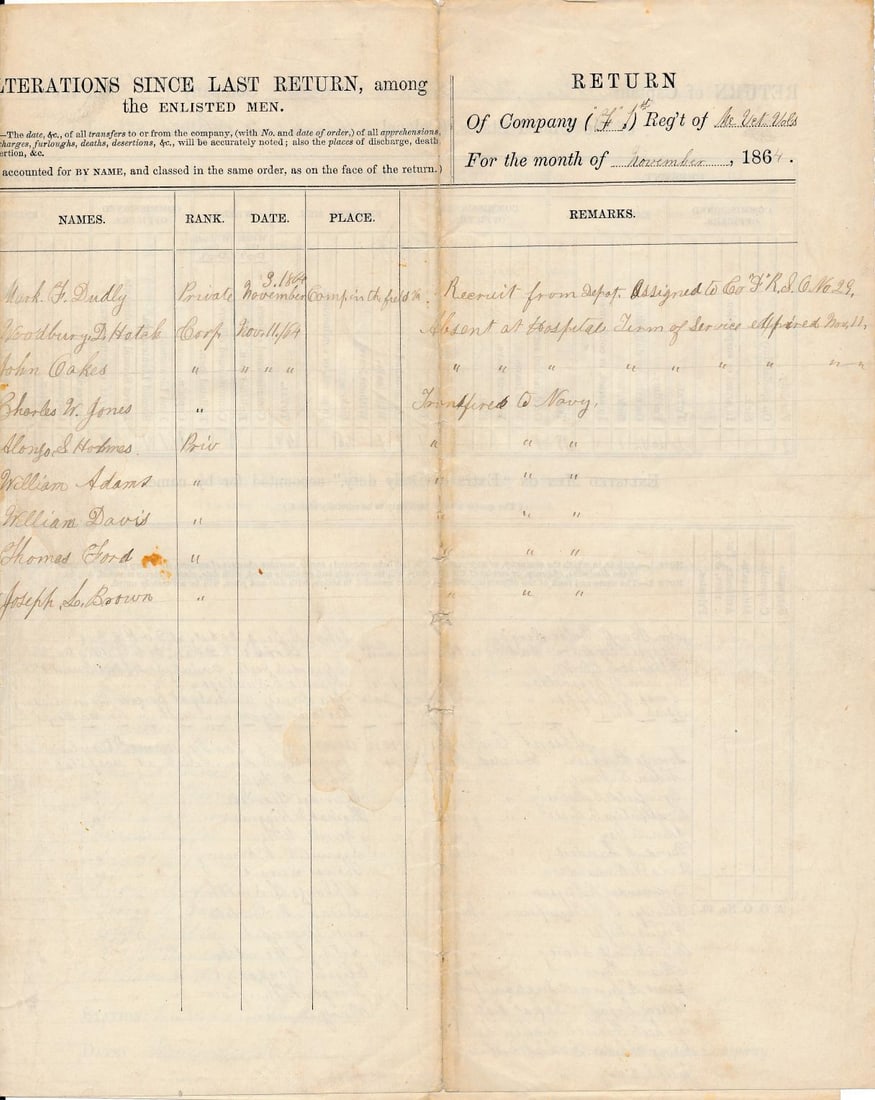 LTERATIONS SINCE LAST RETURN, among
the ENLISTED MEN.
—The date, &c., of all transfers to or from the company, (with No. and date of order,) of all apprehensions,
charges, furloughs, deaths, desertions, &c., will be accurately noted; also the places of discharge, death,
ertion, &c.
accounted for BY NAME, and classed in the same order, as on the face of the return.)
RETURN
Of Company ("F",) 1st Reg't of Me. Vet. Vols
For the month of November, 1864.
NAMES. RANK. DATE. PLACE. REMARKS.
Mark F. Dudly Private November 3. 1864 Camp in the field Va. Recruit from Depot. Assigned to Co "F" R.S.O. No 29,
Woodbury D. Corp Nov. 11./64 Absent at Hospital, Term of Service expired Nov. 11,
John Oakes " " " " " " " " " " " " "
Charles W. Jones " Transfired to Navy,
Alonzo S Holmes Priv " " "
William Adams " " " "
William Davis " " " "
Thomas Ford " " " "
Joseph L. Brown " " " "